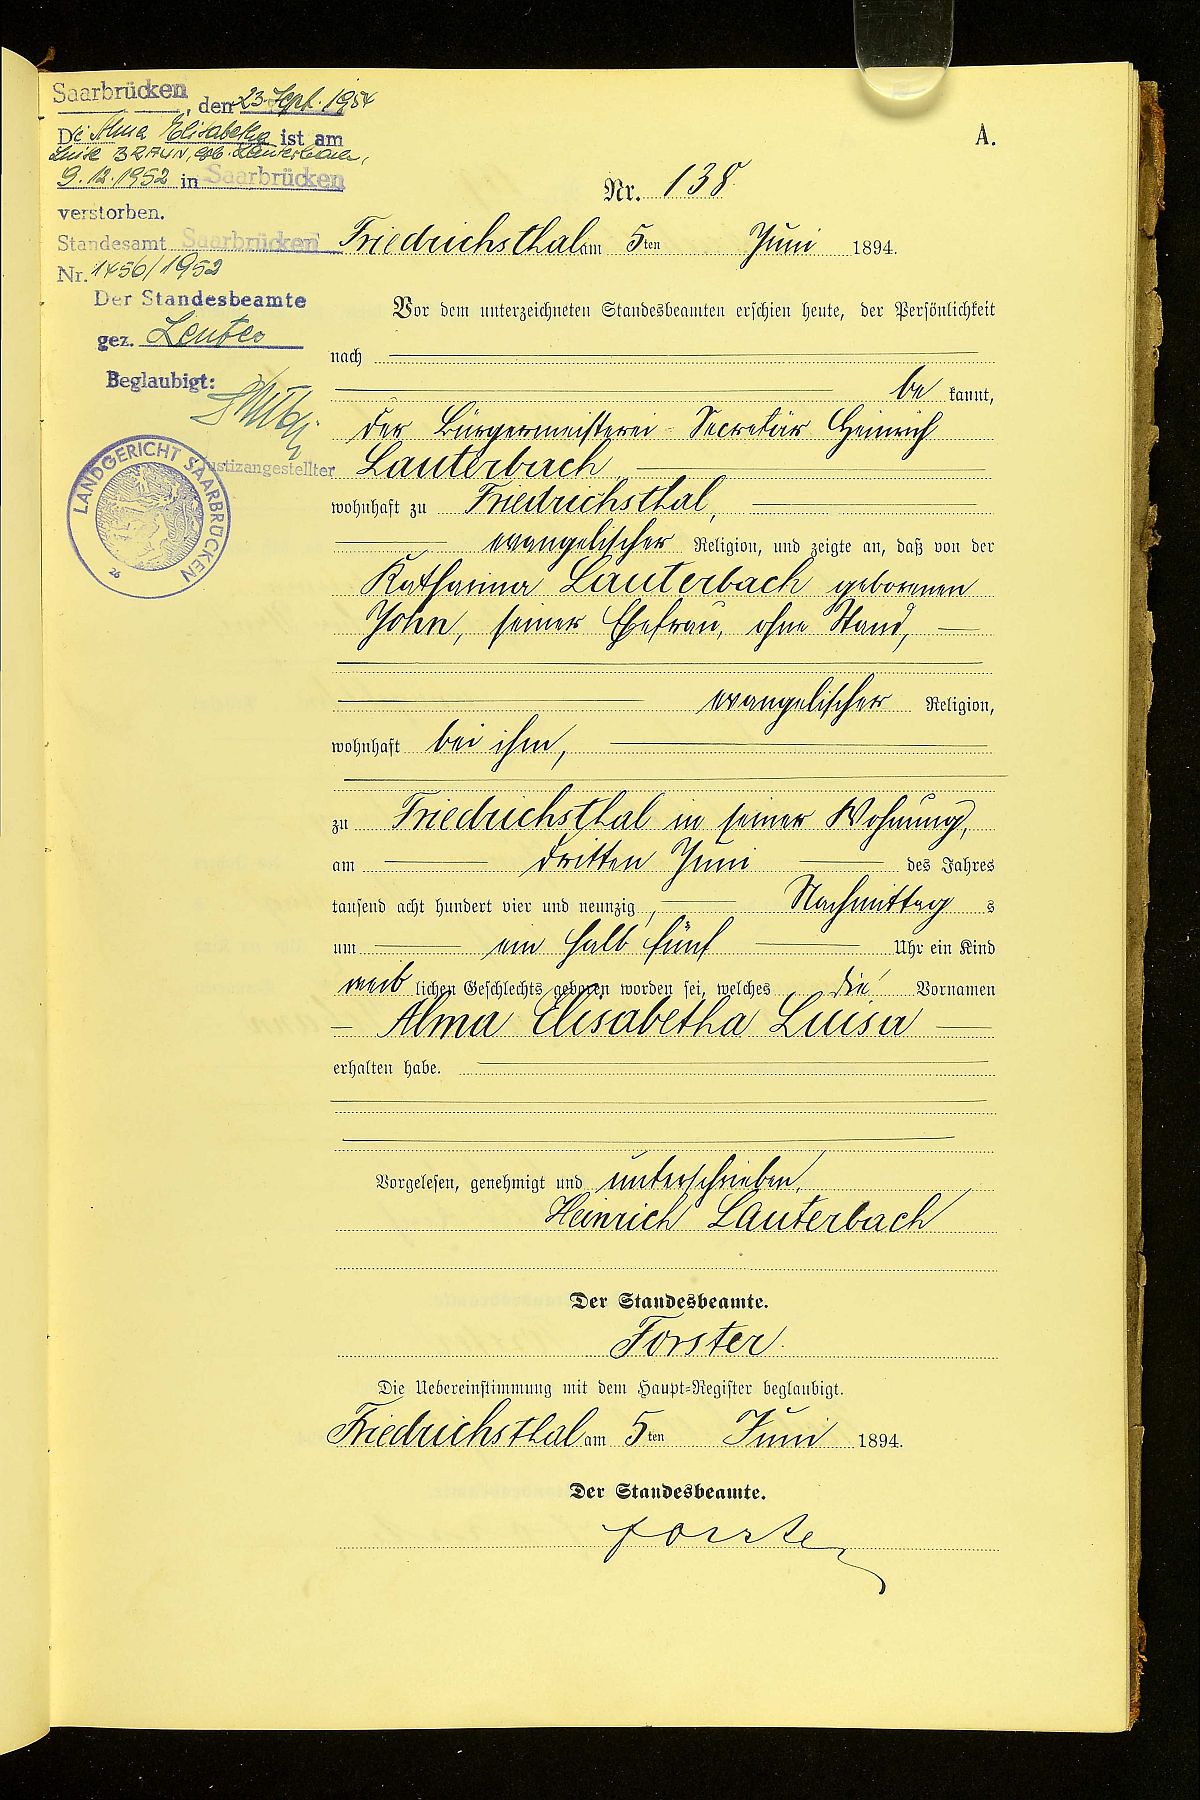 Saarbrücken, den 23. Sept. 1954
Die Alma Elisabetha ist am
Luise BRAUN, geb. Lauterbach,
9.12.1952 in Saarbrücken
verstorben.
Standesamt Saarbrücken
Nr. 1456/1952
Der Standesbeamte
gez.
Beglaubigt:
Justizangestellter
LANDGERICHT SAARBRÜCKEN
26
A.
Nr. 138.
Friedrichsthal am 5ten Juni 1894.
Vor dem unterzeichneten Standesbeamten erschien heute, der Persönlichkeit
nach
be kannt,
der Bürgermeisterei-Secretär Heinrich
Lauterbach
wohnhaft zu Friedrichsthal,
evangelischer Religion, und zeigte an, daß von der
Katharina Lauterbach geborenen
John, seiner Ehefrau, ohne Stand,
evangelischer Religion,
wohnhaft bei ihm,
zu Friedrichsthal in seiner Wohnung,
am dritten Juni des Jahres
tausend acht hundert vier und neunzig, Nachmittag s
um ein halb fünf Uhr ein Kind
weib lichen Geschlechts geboren worden sei, welches die Vornamen
Alma Elisabetha Luisa
erhalten habe.
Vorgelesen, genehmigt und unterschrieben.
Heinrich Lauterbach
Der Standesbeamte.
Forster.
Die Uebereinstimmung mit dem Haupt-Register beglaubigt.
Friedrichsthal am 5ten Juni 1894.
Der Standesbeamte.
Forster